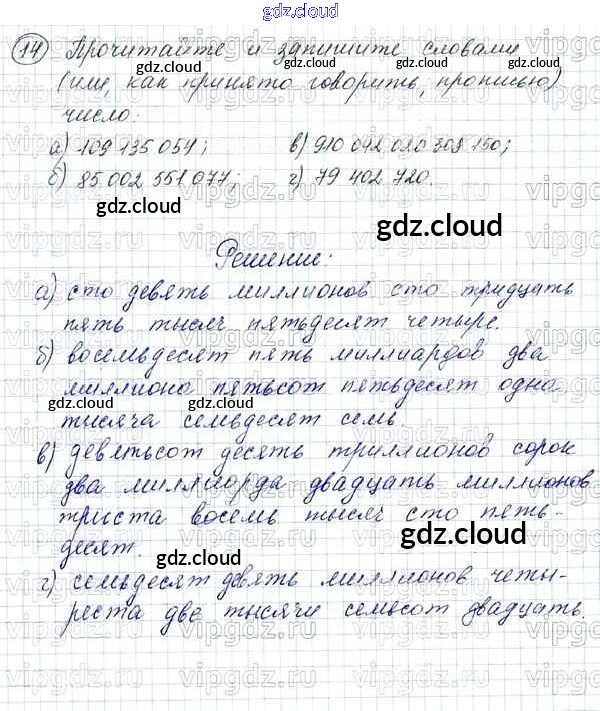 gdz.cloud
14 Прочитайте и запишите словами
(или, как принято говорить, прописью)
число:
а) 109 135 054; в) 910 042 020 308 150;
б) 85 002 551 077; г) 79 402 720.
Решение:
а) сто девять миллионов сто тридцать
пять тысяч пятьдесят четыре.
б) восемьдесят пять миллиардов два
миллиона пятьсот пятьдесят одна
тысяча семьдесят семь
в) девятьсот десять триллионов сорок
два миллиарда двадцать миллионов
триста восемь тысяч сто пять-
десят.
г) семьдесят девять миллионов четы-
реста две тысячи семьсот двадцать.